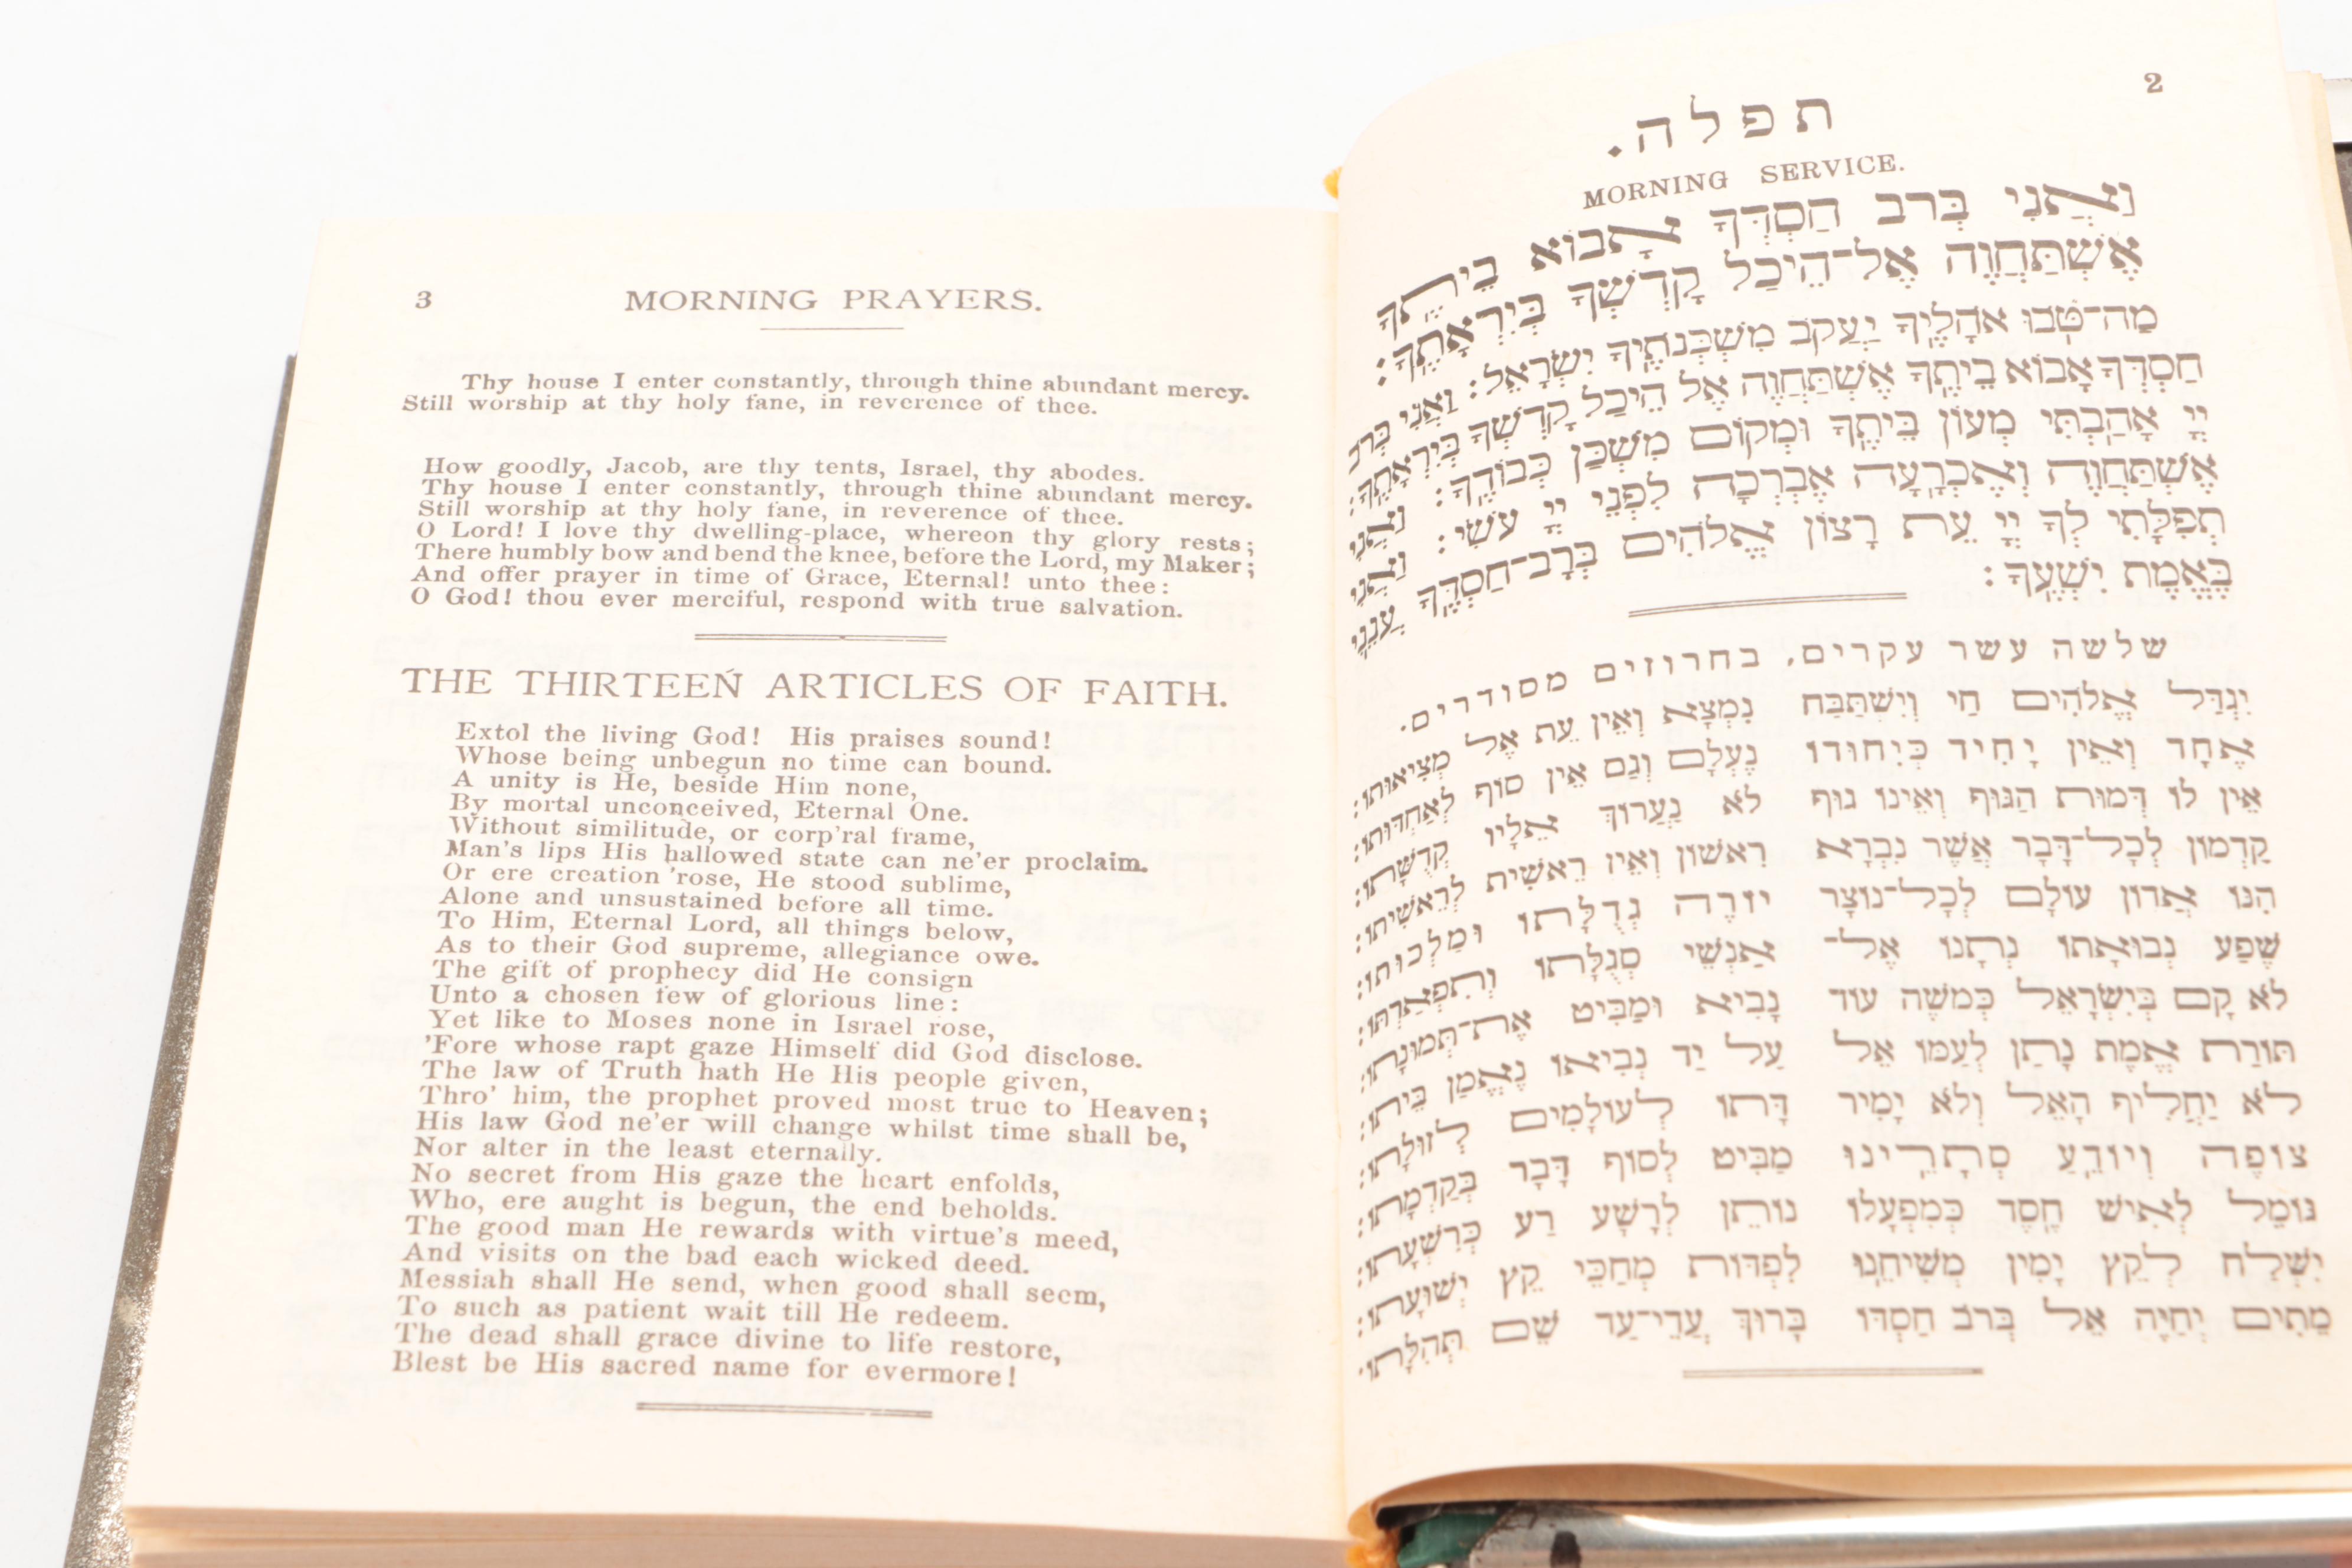 2
תפלה.
MORNING SERVICE.
וַאֲנִי בְּרֹב חַסְדְּךָ אָבוֹא בֵיתֶךָ
אֶשְׁתַּחֲוֶה אֶל־הֵיכַל קָדְשְׁךָ בְּיִרְאָתֶךָ:
מַה־טֹּבוּ אֹהָלֶיךָ יַעֲקֹב מִשְׁכְּנֹתֶיךָ יִשְׂרָאֵל: וַאֲנִי בְּרֹב
חַסְדְּךָ אָבוֹא בֵיתֶךָ אֶשְׁתַּחֲוֶה אֶל הֵיכַל קָדְשְׁךָ בְּיִרְאָתֶךָ:
יְיָ אָהַבְתִּי מְעוֹן בֵּיתֶךָ וּמְקוֹם מִשְׁכַּן כְּבוֹדֶךָ: וַאֲנִי
אֶשְׁתַּחֲוֶה וְאֶכְרָעָה אֶבְרְכָה לִפְנֵי יְיָ עֹשִׂי: וַאֲנִי
תְפִלָּתִי לְךָ יְיָ עֵת רָצוֹן אֱלֹהִים בְּרָב־חַסְדֶּךָ עֲנֵנִי
בֶּאֱמֶת יִשְׁעֶךָ:
שלשה עשר עקרים, בחרוזים מסודרים.
יִגְדַּל אֱלֹהִים חַי וְיִשְׁתַּבַּח נִמְצָא וְאֵין עֵת אֶל מְצִיאוּתוֹ:
אֶחָד וְאֵין יָחִיד כְּיִחוּדוֹ נֶעְלָם וְגַם אֵין סוֹף לְאַחְדּוּתוֹ:
אֵין לוֹ דְּמוּת הַגּוּף וְאֵינוֹ גוּף לֹא נַעֲרוֹךְ אֵלָיו קְדֻשָּׁתוֹ:
קַדְמוֹן לְכָל־דָּבָר אֲשֶׁר נִבְרָא רִאשׁוֹן וְאֵין רֵאשִׁית לְרֵאשִׁיתוֹ:
הִנּוֹ אֲדוֹן עוֹלָם לְכָל־נוֹצָר יוֹרֶה גְדֻלָּתוֹ וּמַלְכוּתוֹ:
שֶׁפַע נְבוּאָתוֹ נְתָנוֹ אֶל־ אַנְשֵׁי סְגֻלָּתוֹ וְתִפְאַרְתּוֹ:
לֹא קָם בְּיִשְׂרָאֵל כְּמֹשֶׁה עוֹד נָבִיא וּמַבִּיט אֶת־תְּמוּנָתוֹ:
תּוֹרַת אֱמֶת נָתַן לְעַמּוֹ אֵל עַל יַד נְבִיאוֹ נֶאֱמַן בֵּיתוֹ:
לֹא יַחֲלִיף הָאֵל וְלֹא יָמִיר דָּתוֹ לְעוֹלָמִים לְזוּלָתוֹ:
צוֹפֶה וְיוֹדֵעַ סְתָרֵינוּ מַבִּיט לְסוֹף דָּבָר בְּקַדְמָתוֹ:
גּוֹמֵל לְאִישׁ חֶסֶד כְּמִפְעָלוֹ נוֹתֵן לְרָשָׁע רַע כְּרִשְׁעָתוֹ:
יִשְׁלַח לְקֵץ יָמִין מְשִׁיחֵנוּ לִפְדּוֹת מְחַכֵּי קֵץ יְשׁוּעָתוֹ:
מֵתִים יְחַיֶּה אֵל בְּרֹב חַסְדּוֹ בָּרוּךְ עֲדֵי־עַד שֵׁם תְּהִלָּתוֹ:
3 MORNING PRAYERS.
Thy house I enter constantly, through thine abundant mercy.
Still worship at thy holy fane, in reverence of thee.
How goodly, Jacob, are thy tents, Israel, thy abodes.
Thy house I enter constantly, through thine abundant mercy.
Still worship at thy holy fane, in reverence of thee.
O Lord! I love thy dwelling-place, whereon thy glory rests;
There humbly bow and bend the knee, before the Lord, my Maker;
And offer prayer in time of Grace, Eternal! unto thee:
O God! thou ever merciful, respond with true salvation.
THE THIRTEEN ARTICLES OF FAITH.
Extol the living God! His praises sound!
Whose being unbegun no time can bound.
A unity is He, beside Him none,
By mortal unconceived, Eternal One.
Without similitude, or corp'ral frame,
Man's lips His hallowed state can ne'er proclaim.
Or ere creation 'rose, He stood sublime,
Alone and unsustained before all time.
To Him, Eternal Lord, all things below,
As to their God supreme, allegiance owe.
The gift of prophecy did He consign
Unto a chosen few of glorious line:
Yet like to Moses none in Israel rose,
'Fore whose rapt gaze Himself did God disclose.
The law of Truth hath He His people given,
Thro' him, the prophet proved most true to Heaven;
His law God ne'er will change whilst time shall be,
Nor alter in the least eternally.
No secret from His gaze the heart enfolds,
Who, ere aught is begun, the end beholds.
The good man He rewards with virtue's meed,
And visits on the bad each wicked deed.
Messiah shall He send, when good shall seem,
To such as patient wait till He redeem.
The dead shall grace divine to life restore,
Blest be His sacred name for evermore!